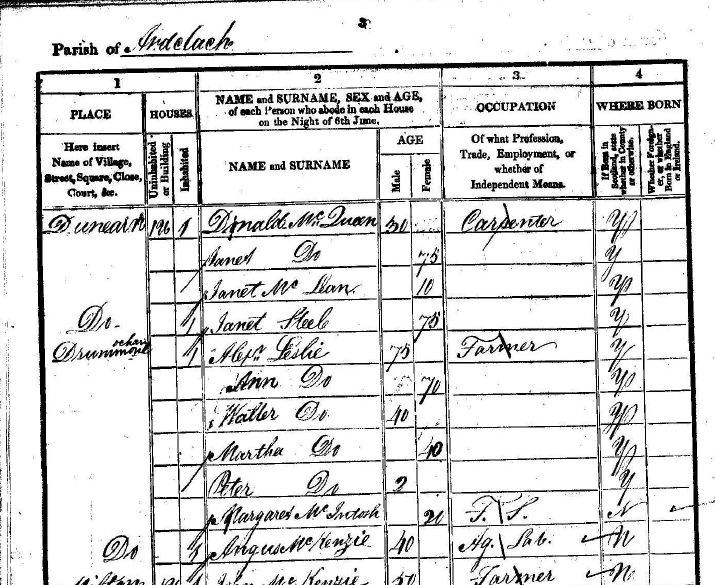 3
Parish of Ardclach
1 2 3 4
PLACE HOUSES NAME and SURNAME, SEX and AGE, of each Person who abode in each House on the Night of 6th June. OCCUPATION WHERE BORN
Here insert Name of Village, Street, Square, Close, Court, &c. Uninhabited or Building Inhabited NAME and SURNAME AGE Male Female Of what Profession, Trade, Employment, or whether of Independent Means. If Born in Scotland, state whether in County or otherwise. Whether Foreigner, or whether Born in England or Ireland.
Dunearn 1 Donald McQueen 50 Carpenter Y
Janet Do 75 Y
Janet McLean 10 Y
Do 1 Janet Steel 75 Y
Drummond 1 Alexr Leslie 75 Farmer Y
Ann Do 70 Y
Walter Do 40 Y
Martha Do 40 Y
Peter Do 2 Y
Margaret McIntosh 20 F. S. N
Do 1 Angus McKenzie 40 Ag. Lab. N
McKenzie 50 Farmer N